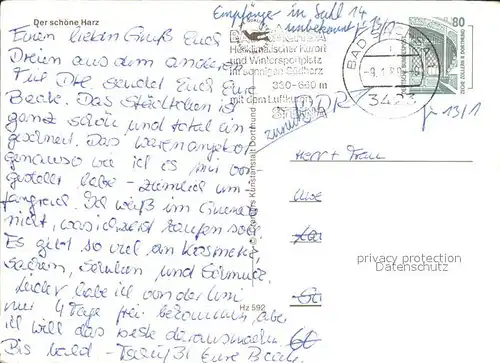 Der schöne Harz
Einen lieben Gruß Euch
Dreien aus dem anderen
Teil Dtl. sendet Euch Eure
Beate. Das Städtchen ist
ganz schön und total ein-
geschneit. Das Warenangebot
genauso wie ich es mir vor-
gestellt habe - ziemlich um-
fangreich. Ich weiß im Grunde
nicht, was ich zuerst kaufen soll.
Es gibt so viel an Kosmetik-
sachen, Schuhen und Schmuck.
Leider habe ich von der Uni
nur 4 Tage frei bekommen, aber
ich will das beste daraus machen.
Bis bald - Eure Beate.
Empfänger in Suhl 14
unbekannt
13/1
Heilklimatischer Kurort
und Wintersportplatz
im sonnigen Südharz
350-660 m
mit dem Luftkurort
BAD SACHSA
3423
80
DEUTSCHE BUNDESPOST
ZECHE ZOLLERN II DORTMUND
DDR
zurück
13/1
Herr + Frau
Kunstanstalt Dortmund
Hz 592
privacy protection
Datenschutz